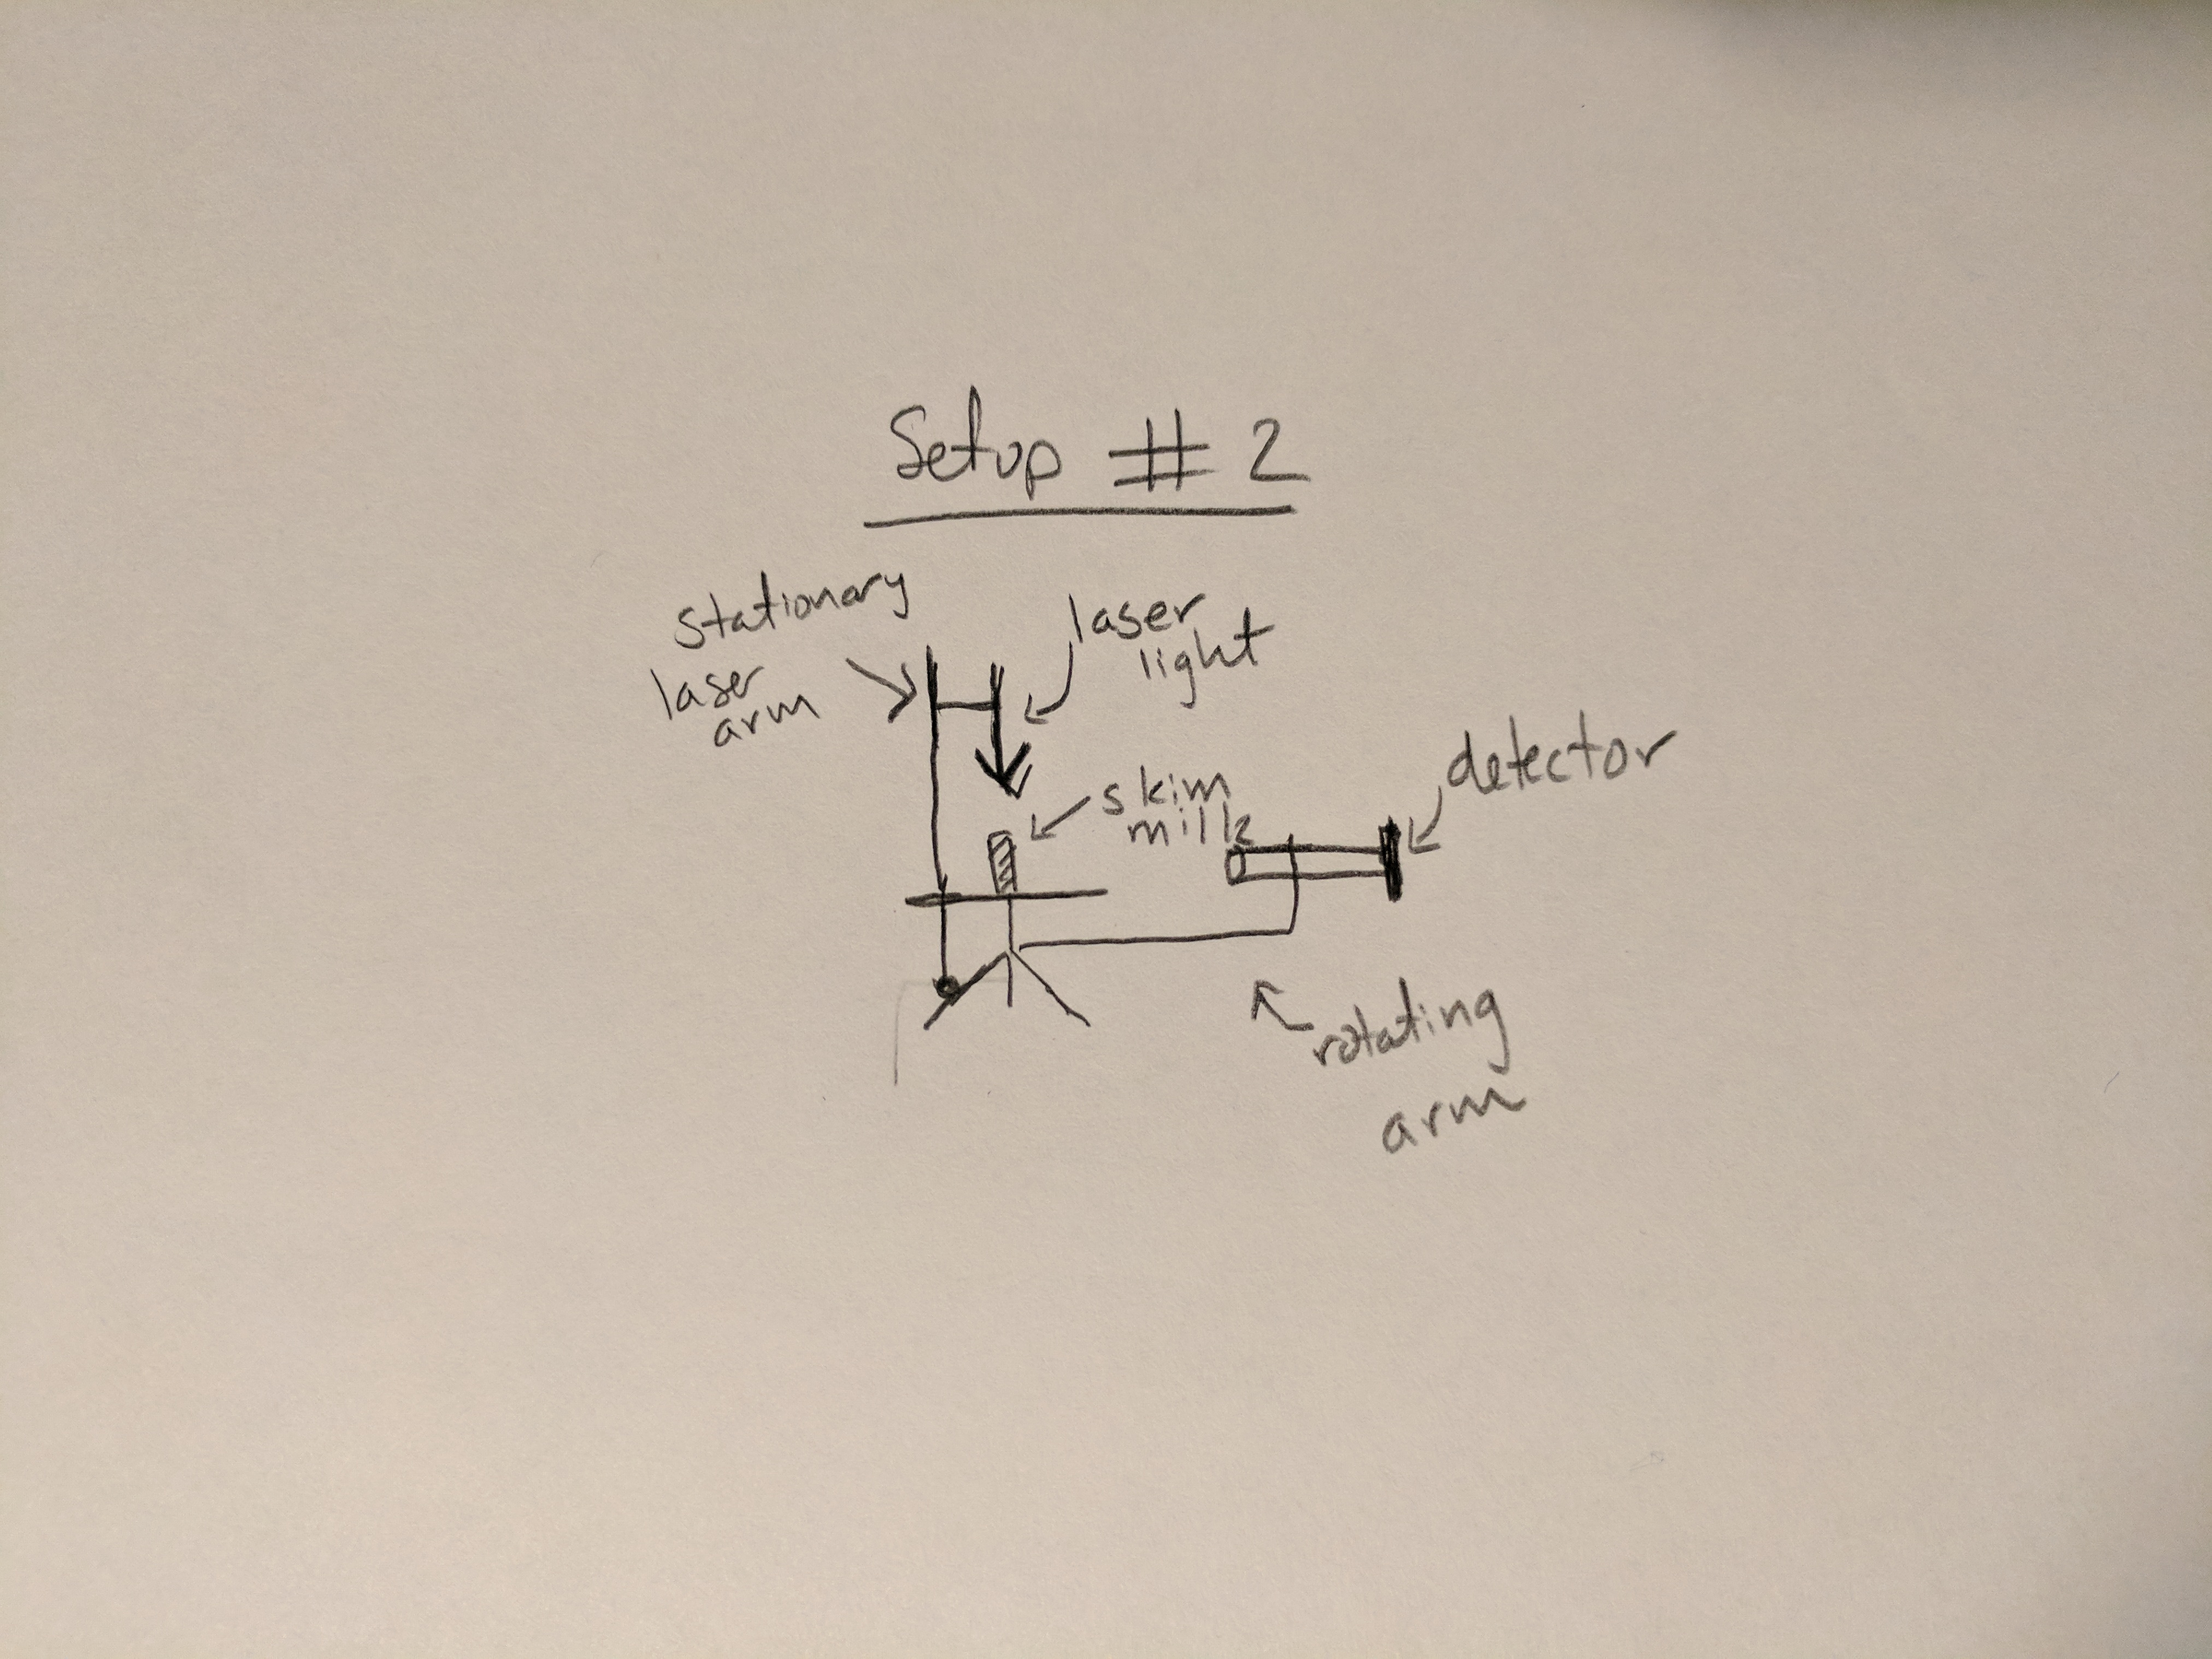 Setup # 2
stationary
laser
arm
laser
light
skim
milk
detector
rotating
arm